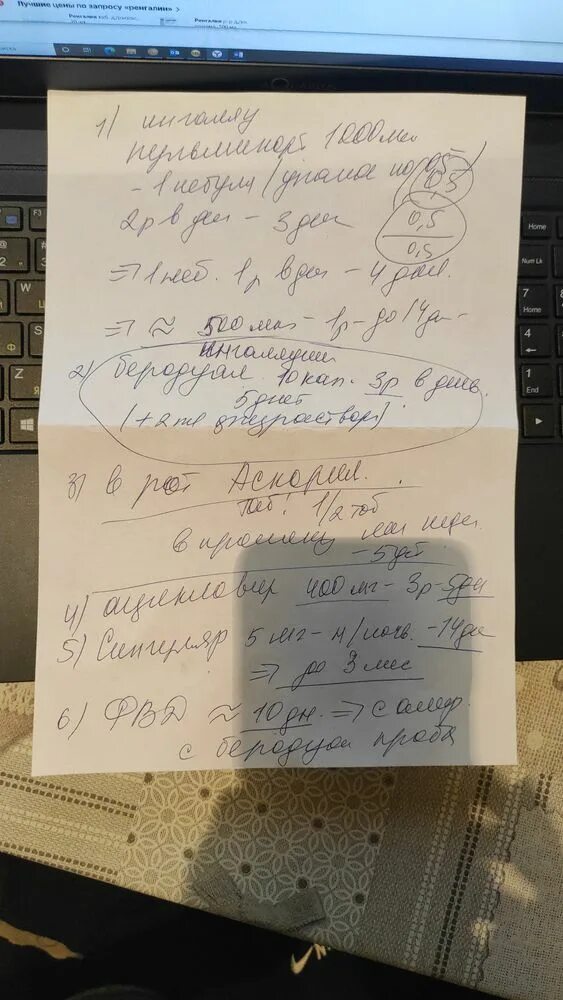 Лучшие цены по запросу «ренгалин» >
1) ингаляц
пульмикорт 1000 мкг
- 1 небула /
0,5
2р в ден - 3 дня
0,5
0,5
⇒ 1 неб. 1р в ден - 4 дней.
⇒ ≈ 500 мкг - 1р - до 14 дн -
ингаляции
2) беродуал 10 кап. 3р в день.
5 дней
(+ 2 мл физраствор)
3) в рот Аскорил.
таб! 1/2 таб
в
- 5 дн
4) ацикловир 400 мг - 3р - 5 дн
5) Сингуляр 5 мг - н/ночь - 14 дн
⇒ до 3 мес
6) ФВД ≈ 10 дн. ⇒
с беродуал проба
F3
Home
Num Lk
7
Home
4
1
End
0
Ins